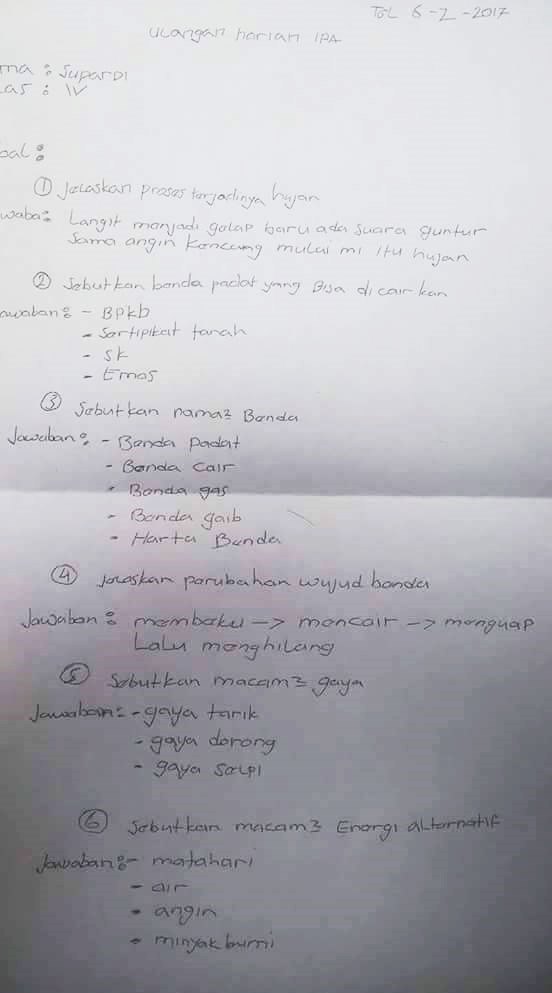 Tgl 6-2-2017
ulangan harian IPA
ma : Supardi
as : IV
oal :
① Jelaskan proses terjadinya hujan
waban : Langit menjadi gelap baru ada suara guntur
sama angin kencang mulai mi itu hujan
② Sebutkan benda padat yang Bisa di cair kan
awaban : - BPkb
- Sertipikat tanah
- SK
- Emas
③ Sebutkan nama2 Benda
Jawaban : - Benda padat
- Benda cair
- Benda gas
- Benda gaib
- Harta Benda
④ Jelaskan perubahan wujud benda
Jawaban : membeku -> mencair -> menguap
Lalu menghilang
⑤ Sebutkan macam2 gaya
Jawaban : - gaya tarik
- gaya dorong
- gaya selpi
⑥ Sebutkan macam2 Energi alternatif
Jawaban : - matahari
- air
- angin
- minyak bumi